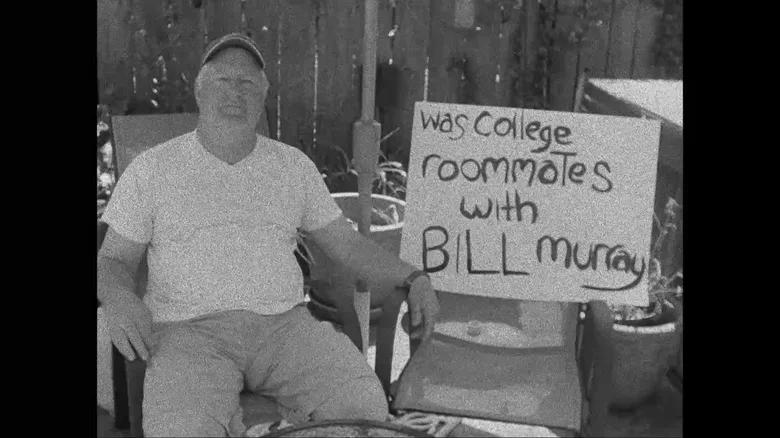 was College
roommates
with
BILL murray